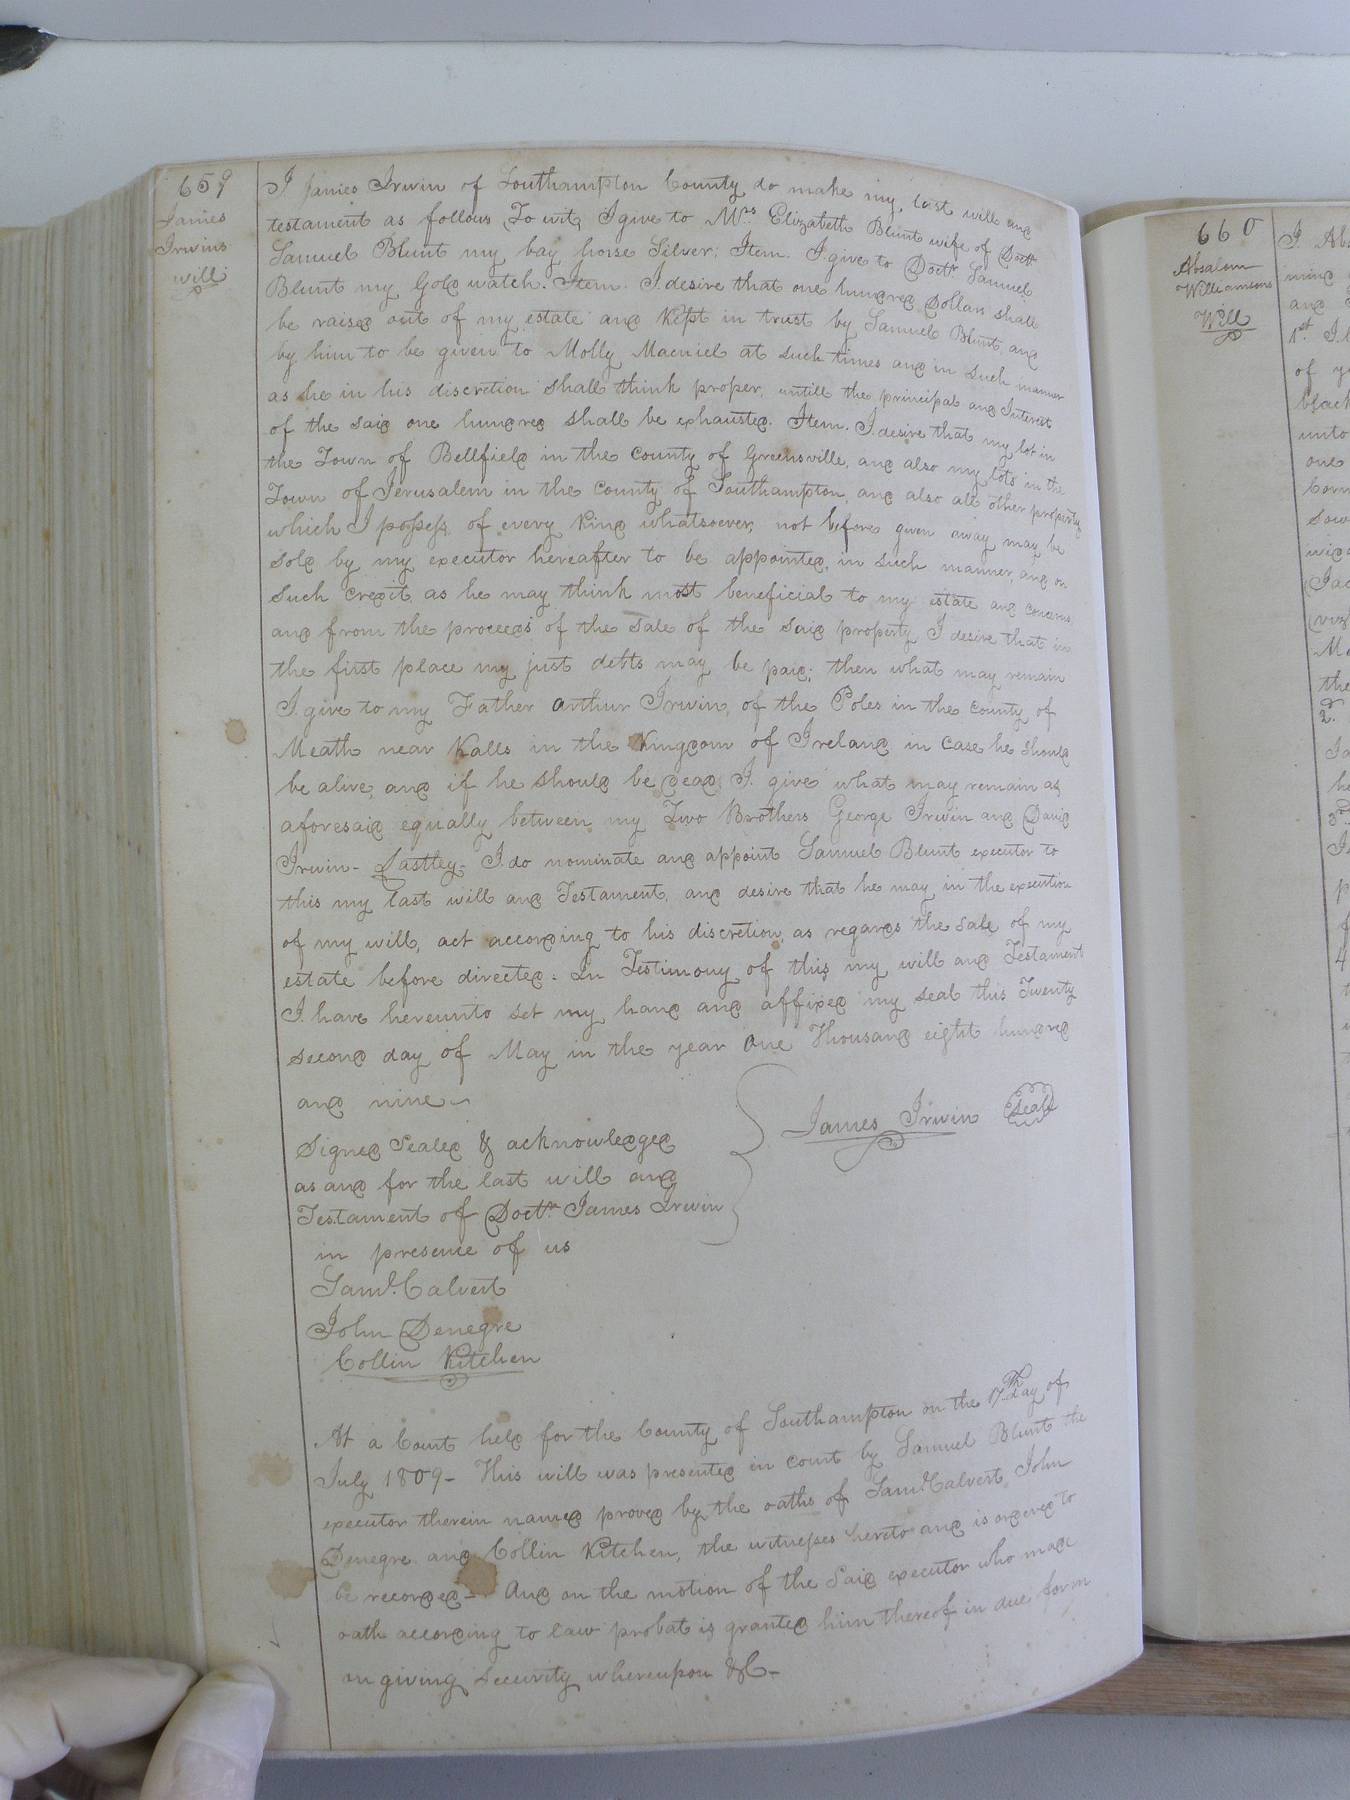 659
James
Irwins
will
I James Irwin of Southampton County do make my last will and
testament as follows To wit, I give to Mrs Elizabeth Blunt wife of Doctr
Samuel Blunt my bay horse Silver; Item. I give to Doctr Samuel
Blunt my Gold watch. Item. I desire that one hundred Dollars shall
be raised out of my estate and Kept in trust by Samuel Blunt, and
by him to be given to Molly Macniel at such times and in such manner
as he in his discretion shall think proper, untill the principal and Interest
of the said one hundred shall be exhausted. Item. I desire that my lot in
the Town of Bellfield in the county of Greensville, and also my lots in the
Town of Jerusalem in the county of Southampton, and also all other property
which I possess of every kind whatsoever, not before given away may be
sold by my executor hereafter to be appointed, in such manner, and on
such credit as he may think most beneficial to my estate and concerns,
and from the proceeds of the sale of the said property I desire that in
the first place my just debts may be paid; then what may remain
I give to my Father Arthur Irwin, of the Poles in the county of
Meath near Kalls in the Kingdom of Ireland in case he should
be alive, and if he should be dead I give what may remain as
aforesaid equally between my Two Brothers George Irwin and David
Irwin - Lastley - I do nominate and appoint Samuel Blunt executor to
this my last will and Testament, and desire that he may in the execution
of my will, act according to his discretion, as regards the sale of my
estate before directed. In Testimony of this my will and Testament
I have hereunto set my hand and affixed my seal this Twenty
second day of May in the year One Thousand eight hundred
and nine
James Irwin Seal
Signed Sealed & acknowledged
as and for the last will and
Testament of Doctr James Irwin
in presence of us
Saml. Calvert
John Denegre
Collin Kitchen
At a Court held for the County of Southampton on the 17th day of
July 1809 - This will was presented in court by Samuel Blunt the
executor therein named proved by the oaths of Saml Calvert, John
Denegre and Collin Kitchen, the witnesses hereto and is ordered to
be recorded - And on the motion of the said executor who made
oath according to law probat is granted him thereof in due form
on giving security whereupon &C -
660
Absalom
Williamsons
Will
I. Abs
mind
and
1st I
of
black
unto
one
Corn
the
2d.
3rd
4